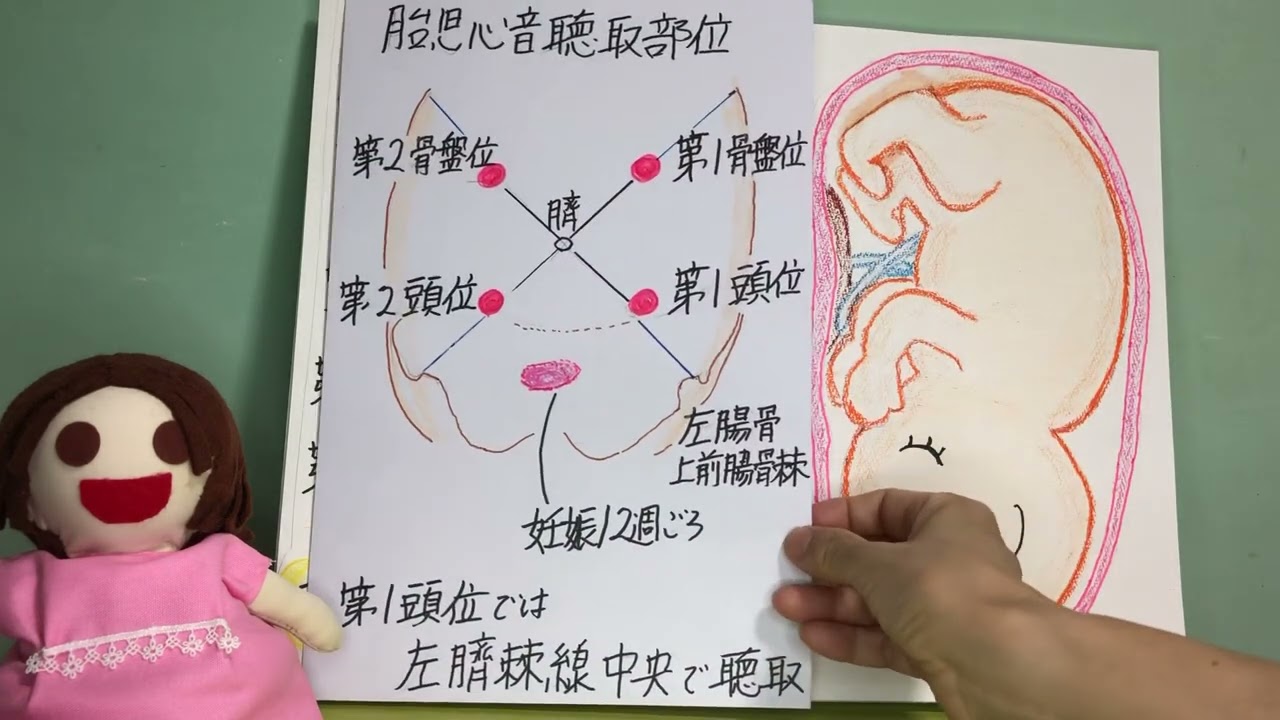 胎児心音聴取部位
第2骨盤位
第1骨盤位
臍
第2頭位
第1頭位
左腸骨
上前腸骨棘
妊娠12週ごろ
第1頭位では
左臍棘線中央で聴取